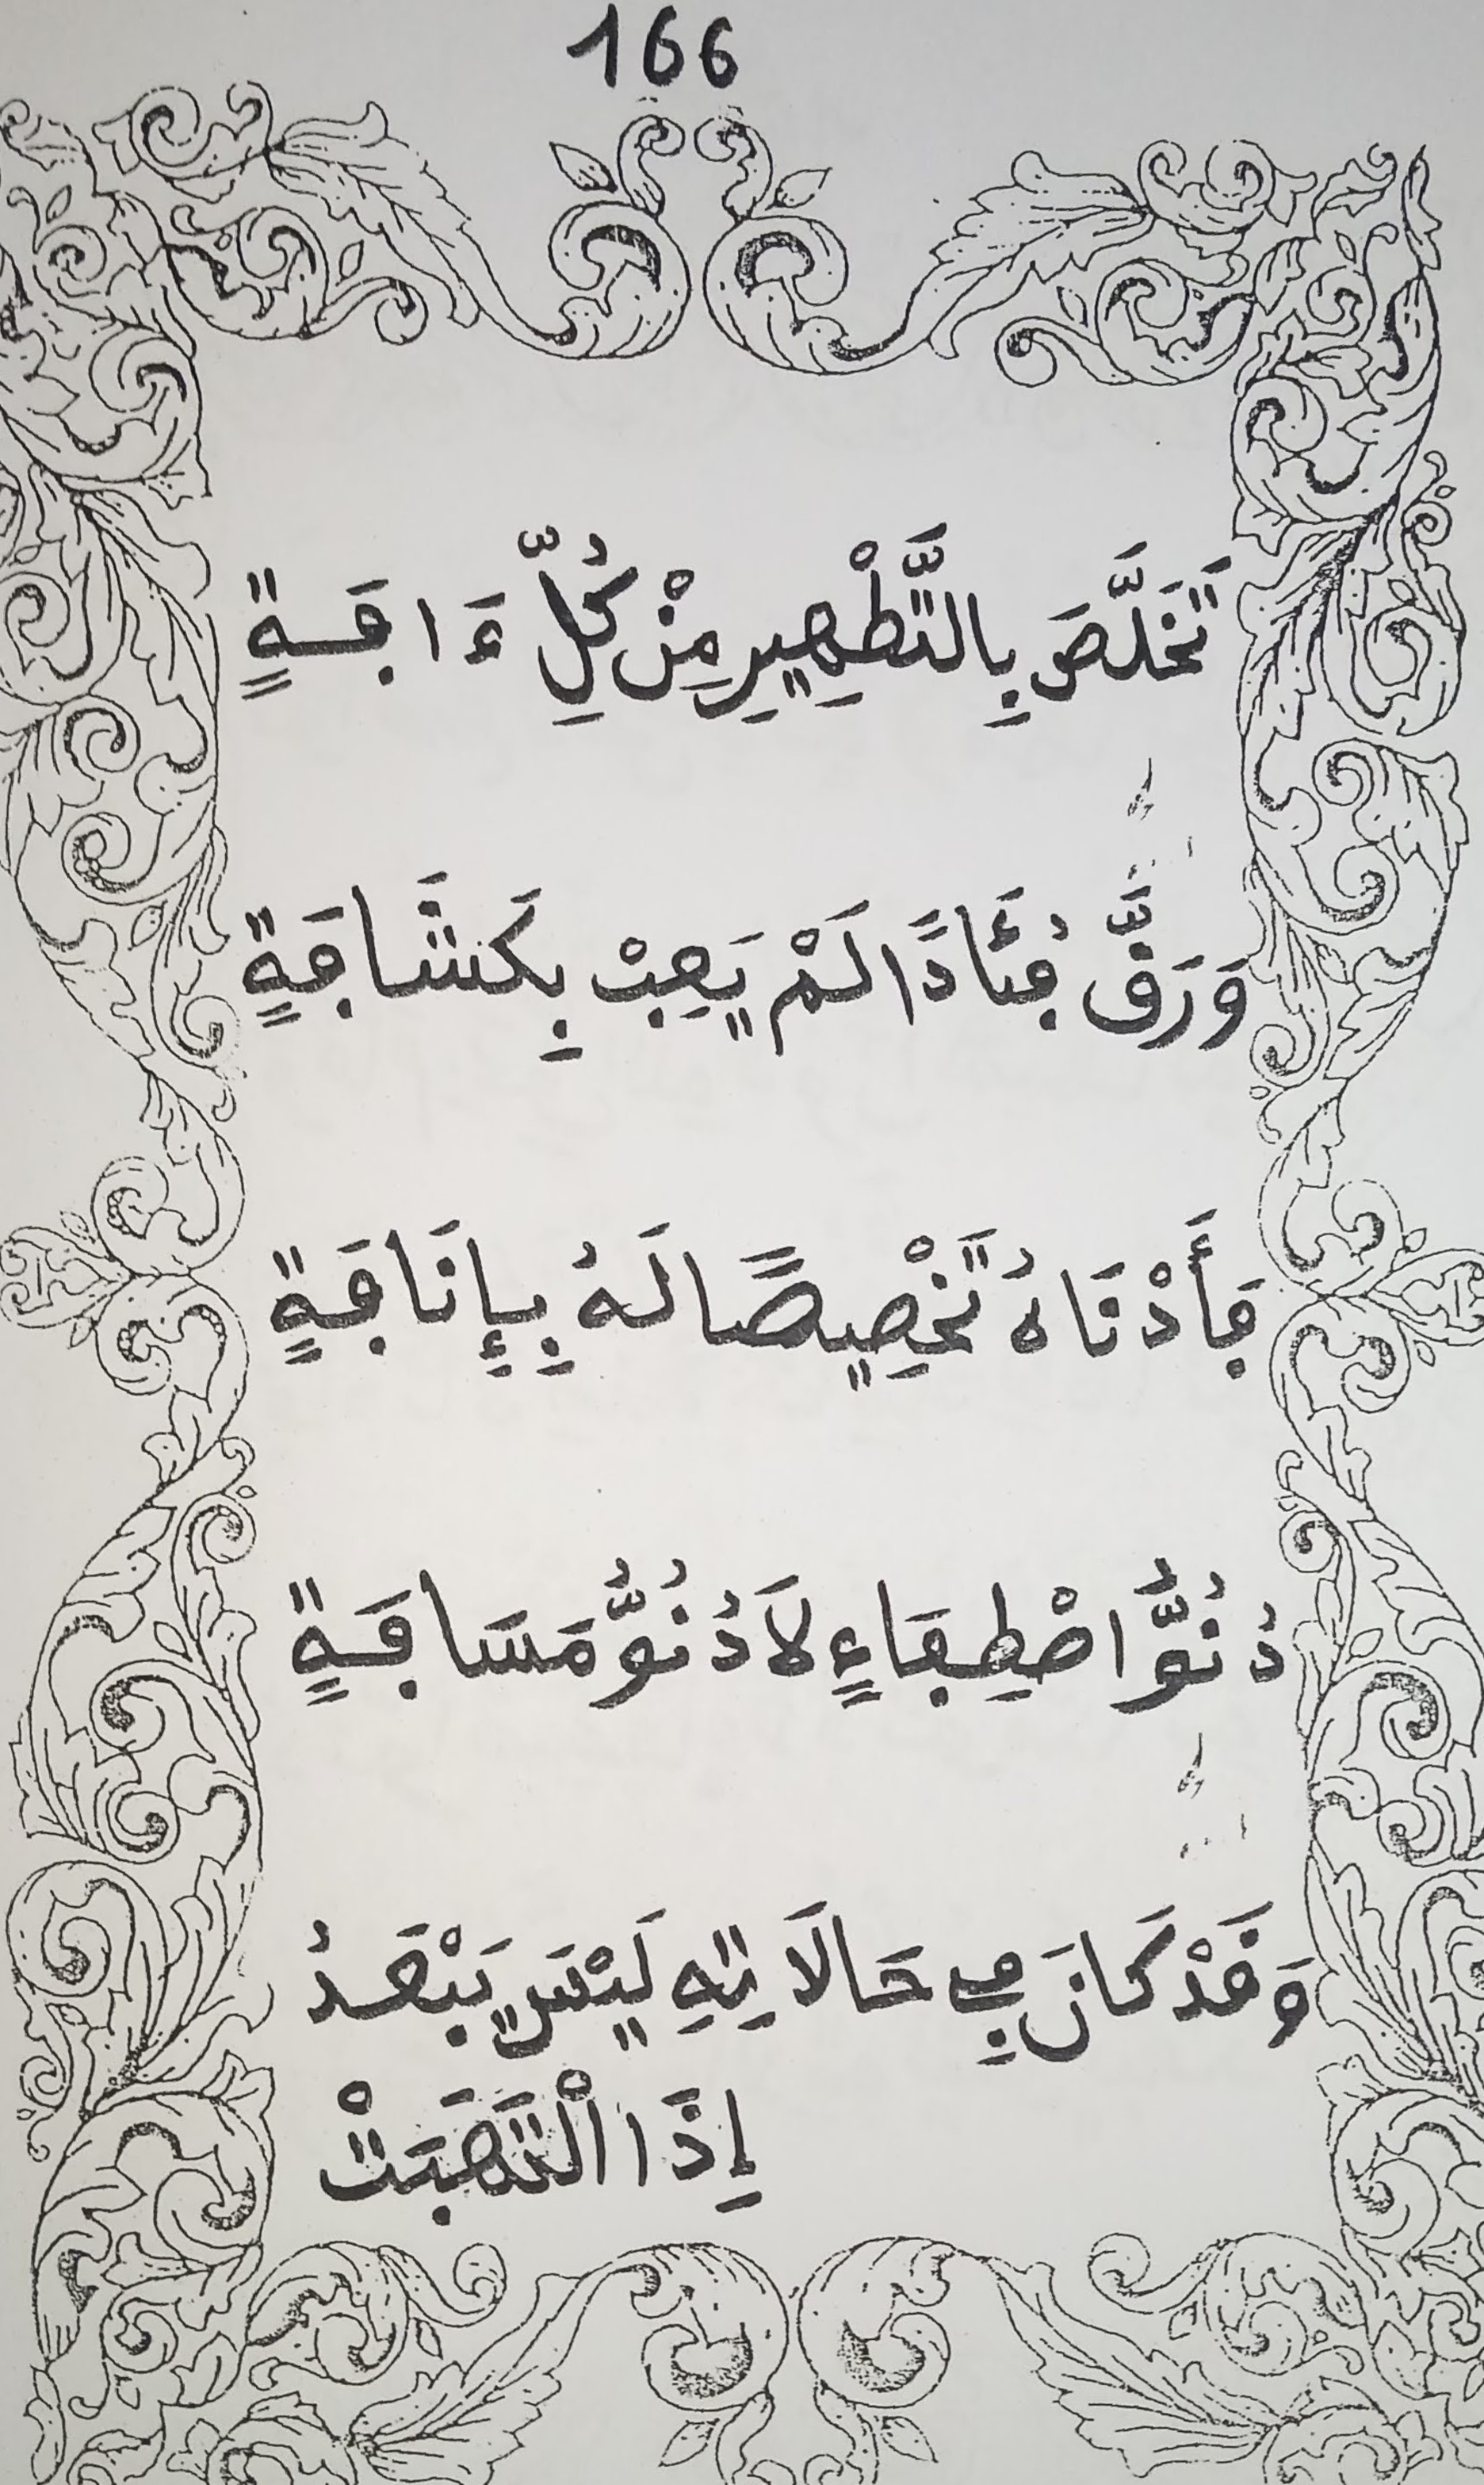 166
تَخَلَّصَ بِالتَّطْهِيرِ مِنْ كُلِّ ءَافَةٍ
وَرَقَّ فُئَادًا لَمْ يَعِبْ بِكَثَافَةٍ
فَأَدْنَاهُ تَخْصِيصًا لَهُ بِإِنَافَةٍ
دُنُوُّ اصْطِفَاءٍ لَا دُنُوُّ مَسَافَةٍ
وَقَدْ كَانَ فِي حَالَاتِهِ لَيْسَ يَبْعَدُ
إِذَا